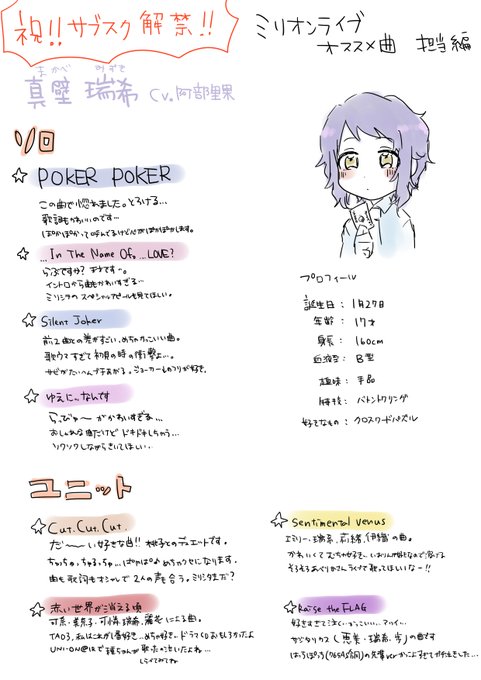 祝!! サブスク解禁!!
ミリオンライブ
オススメ曲 担当編
まかべ みずき
真壁 瑞希 cv.阿部里果
ソロ
POKER POKER
この曲で惚れました。とろける...
歌詞もかわいいのです...
ぽかぽかって呼んでるけど心がぽかぽかします。
...In The Name Of。...LOVE?
らぶですか? キすでーす。
イントロから曲もかわいすぎる...
ミリシタのスペシャルアピールも見てほしい。
Silent Joker
前2曲との差がすごい、めちゃかっこいい曲。
歌ウマすぎて初見の時の衝撃よ...。
サビがたいへんブチあがる。ジョーカーものフリが好き。
ゆえに...なんです
らびゅ〜がかわいすぎる...
おしゃれな曲だけどドキドキしちゃう...
ソワソワしながらきいてほしい...
プロフィール
誕生日 : 1月27日
年齢 : 17才
身長 : 160cm
血液型 : B型
趣味 : 手品
特技 : バトントワリング
好きなもの : クロスワードパズル
ユニット
Cut. Cut. Cut.
だ〜〜い好きな曲!! 桃子とのデュエットです。
ちゅちゅ、ちゅる、ちゅ...ぱぱぱ♪ めちゃクセになります。
曲も歌詞もオシャレで2人の声も合う。ミリシタまだ?
赤い世界が消える頃
可奈・美奈子・可憐・瑞希・麗花による曲。
TA03、私はこれが1番好き...めちゃ好き...ドラマCDおもしろかったよ
UNI-ON@IRで
Sentimental Venus
エミリー・瑞希・莉緒・伊織の曲。
かわいくてむちゃ好き...
ライブで歌ってほしいなー!!
Raise the FLAG
好きすぎて泣く...かっこいい...アツイ...
サジタリアス(恵美・瑞希・歩)の曲です